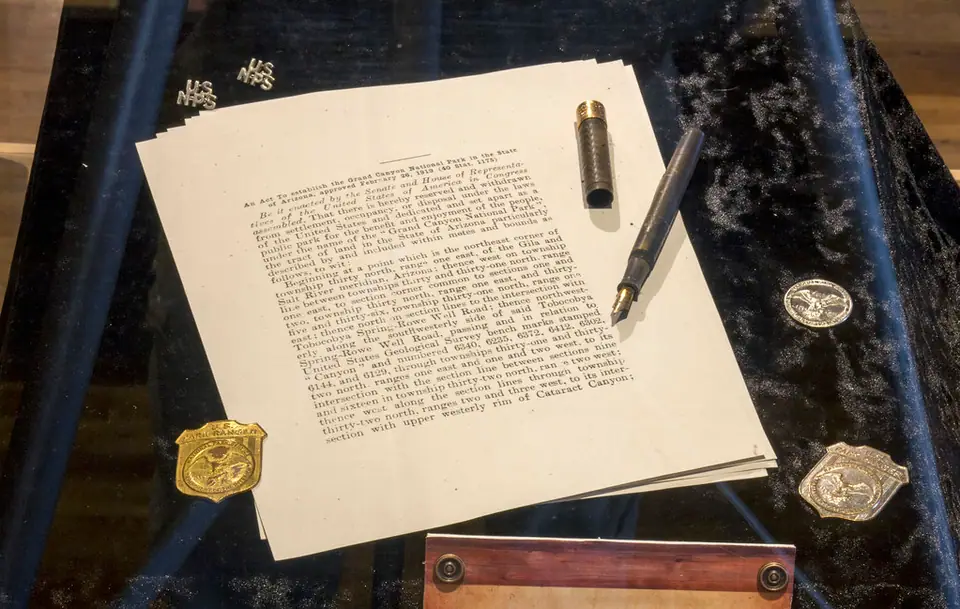 U S
NPS
U S
NPS
An Act To establish the Grand Canyon National Park in the State
of Arizona, approved February 26, 1919 (40 Stat. 1175)
Be it enacted by the Senate and House of Representa-
tives of the United States of America in Congress
assembled, That there is hereby reserved and withdrawn
from settlement, occupancy, or disposal under the laws
of the United States and dedicated and set apart as a
public park for the benefit and enjoyment of the people,
under the name of the "Grand Canyon National Park,"
the tract of land in the State of Arizona particularly
described by and included within metes and bounds as
follows, to wit:
Beginning at a point which is the northeast corner of
township thirty north, range one east, of the Gila and
Salt River meridian, Arizona; thence west on township
line between townships thirty and thirty-one north, range
one east, to section corner common to sections one and
two, township thirty north, range one east, and thirty-
five and thirty-six, township thirty-one north, range one
east; thence north on section lines to the intersection with
Tobocobya Spring-Rowe Well Road; thence northwest-
erly along the southwesterly side of said Tobocobya
Spring-Rowe Well Road, passing and in relation to
United States Geological Survey bench marks stamped
"Canyon" and numbered 6340, 6235, 6372, 6412, 6302,
6144, and 6129, through townships thirty-one and thirty-
two north, ranges one east, and one and two west, to its
intersection with the section line between sections nine
and sixteen in township thirty-two north, ran two west;
thence west along the section lines through township
thirty-two north, ranges two and three west, to its inter-
section with upper westerly rim of Cataract Canyon;
U.S.
PARK RANGER